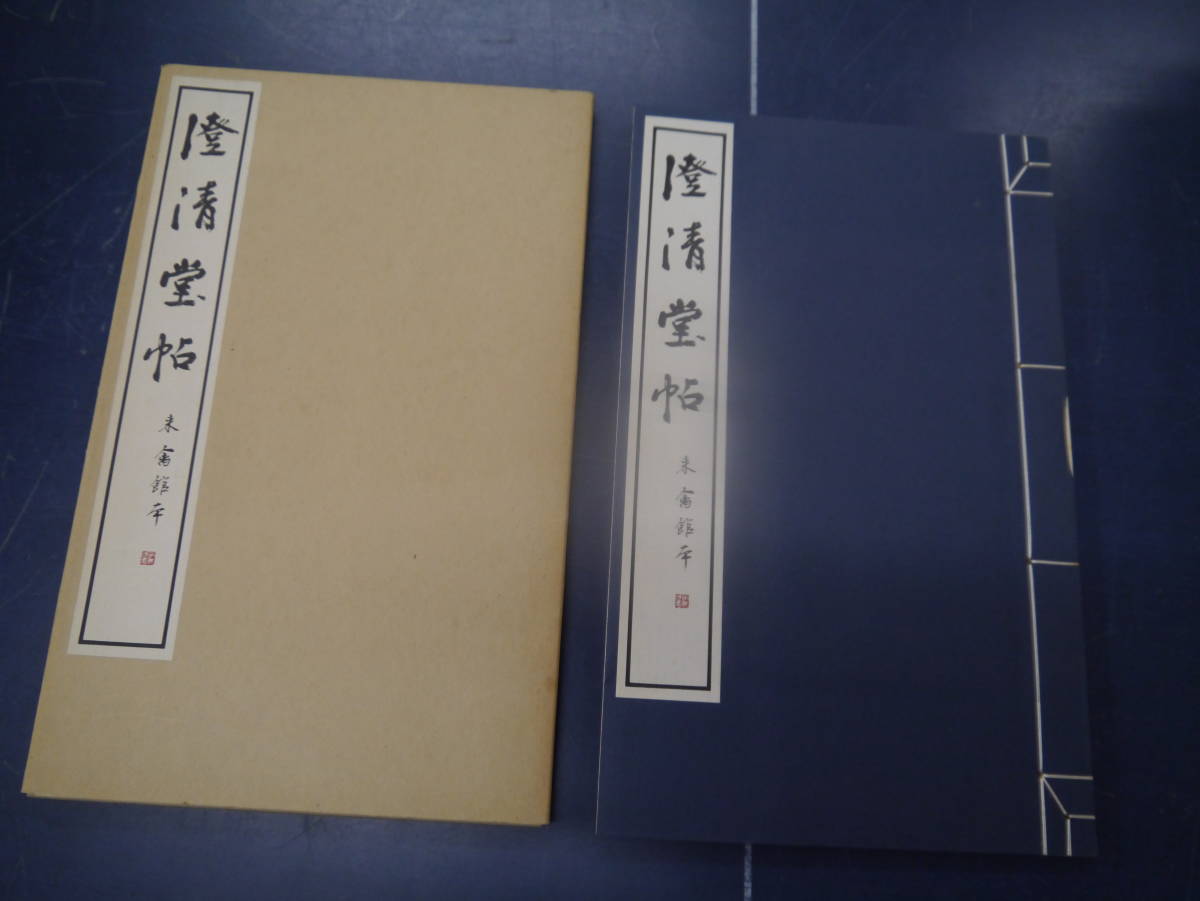 澄清堂帖
来禽館本
澄清堂帖
来禽館本